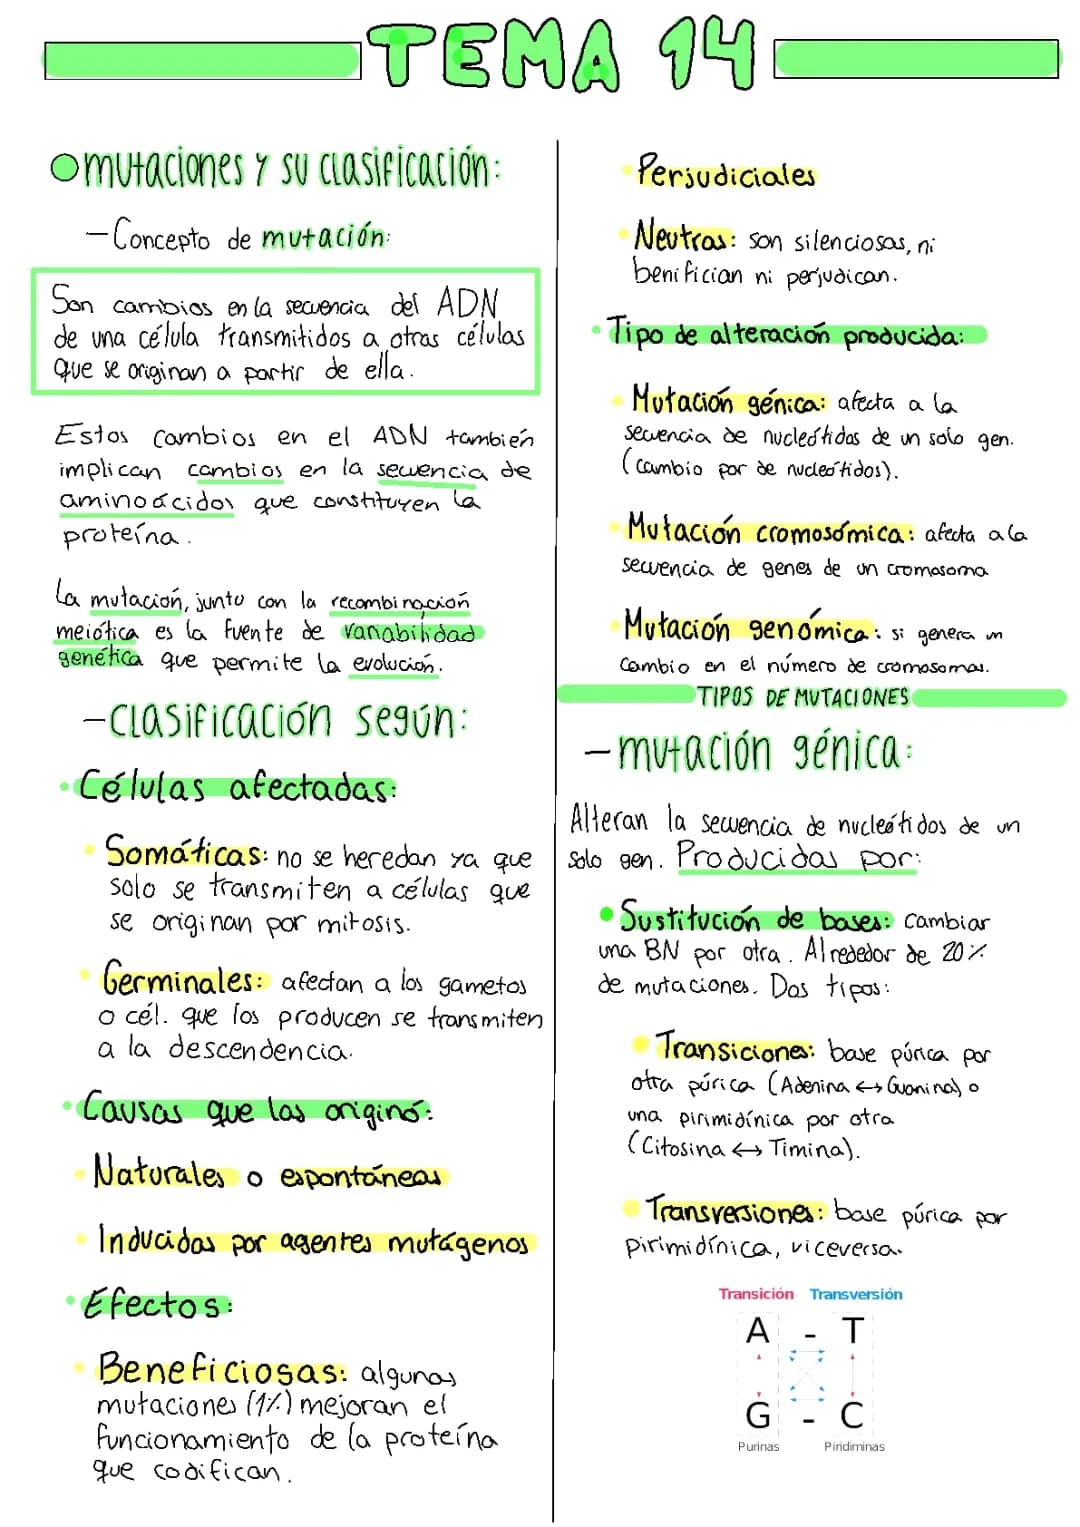 TEMA 14
mutaciones y su clasificación:
- Concepto de mutación:
Son cambios en la secuencia del ADN
de una célula transmitidos a otras células
que se originan a partir de ella.
Estos cambios en el ADN también
implican cambios en la secuencia de
aminoácidos que constituyen la
proteína.
La mutación, junto con la recombinación
meiótica es la fuente de variabilidad
genética que permite la evolución.
- Clasificación según:
· Células afectadas:
· Somáticas: no se heredan ya que
solo se transmiten a células que
se originan por mitosis.
· Germinales: afectan a los gametos
o cél. que los producen se transmiten
a la descendencia.
· Causas que las originó:
· Naturales o espontáneas
· Inducidas por agentes mutágenos
· Efectos:
· Beneficiosas: algunas
mutaciones (1%) mejoran el
funcionamiento de la proteína
que codifican.
· Perjudiciales
· Neutras: son silenciosas, ni
benifician ni perjudican.
· Tipo de alteración producida:
· Mutación génica: afecta a la
secuencia de nucleótidos de un solo gen.
(cambio por de nucleótidos).
· Mutación cromosómica: afecta a la
secuencia de genes de un cromosoma
· Mutación genómica: si genera un
cambio en el número de cromosomas.
TIPOS DE MUTACIONES
- mutación génica:
Alteran la secuencia de nucleótidos de un
solo gen. Producidas por:
· Sustitución de bases: cambiar
una BN por otra. Alrededor de 20%
de mutaciones. Dos tipos:
· Transiciones: base púrica por
otra púrica (Adenina ↔ Guanina) o
una pirimidínica por otra
(Citosina ↔ Timina).
· Transversiones: base púrica por
pirimidínica, viceversa.
Transición Transversión
A - T
G - C
Purinas Piridiminas